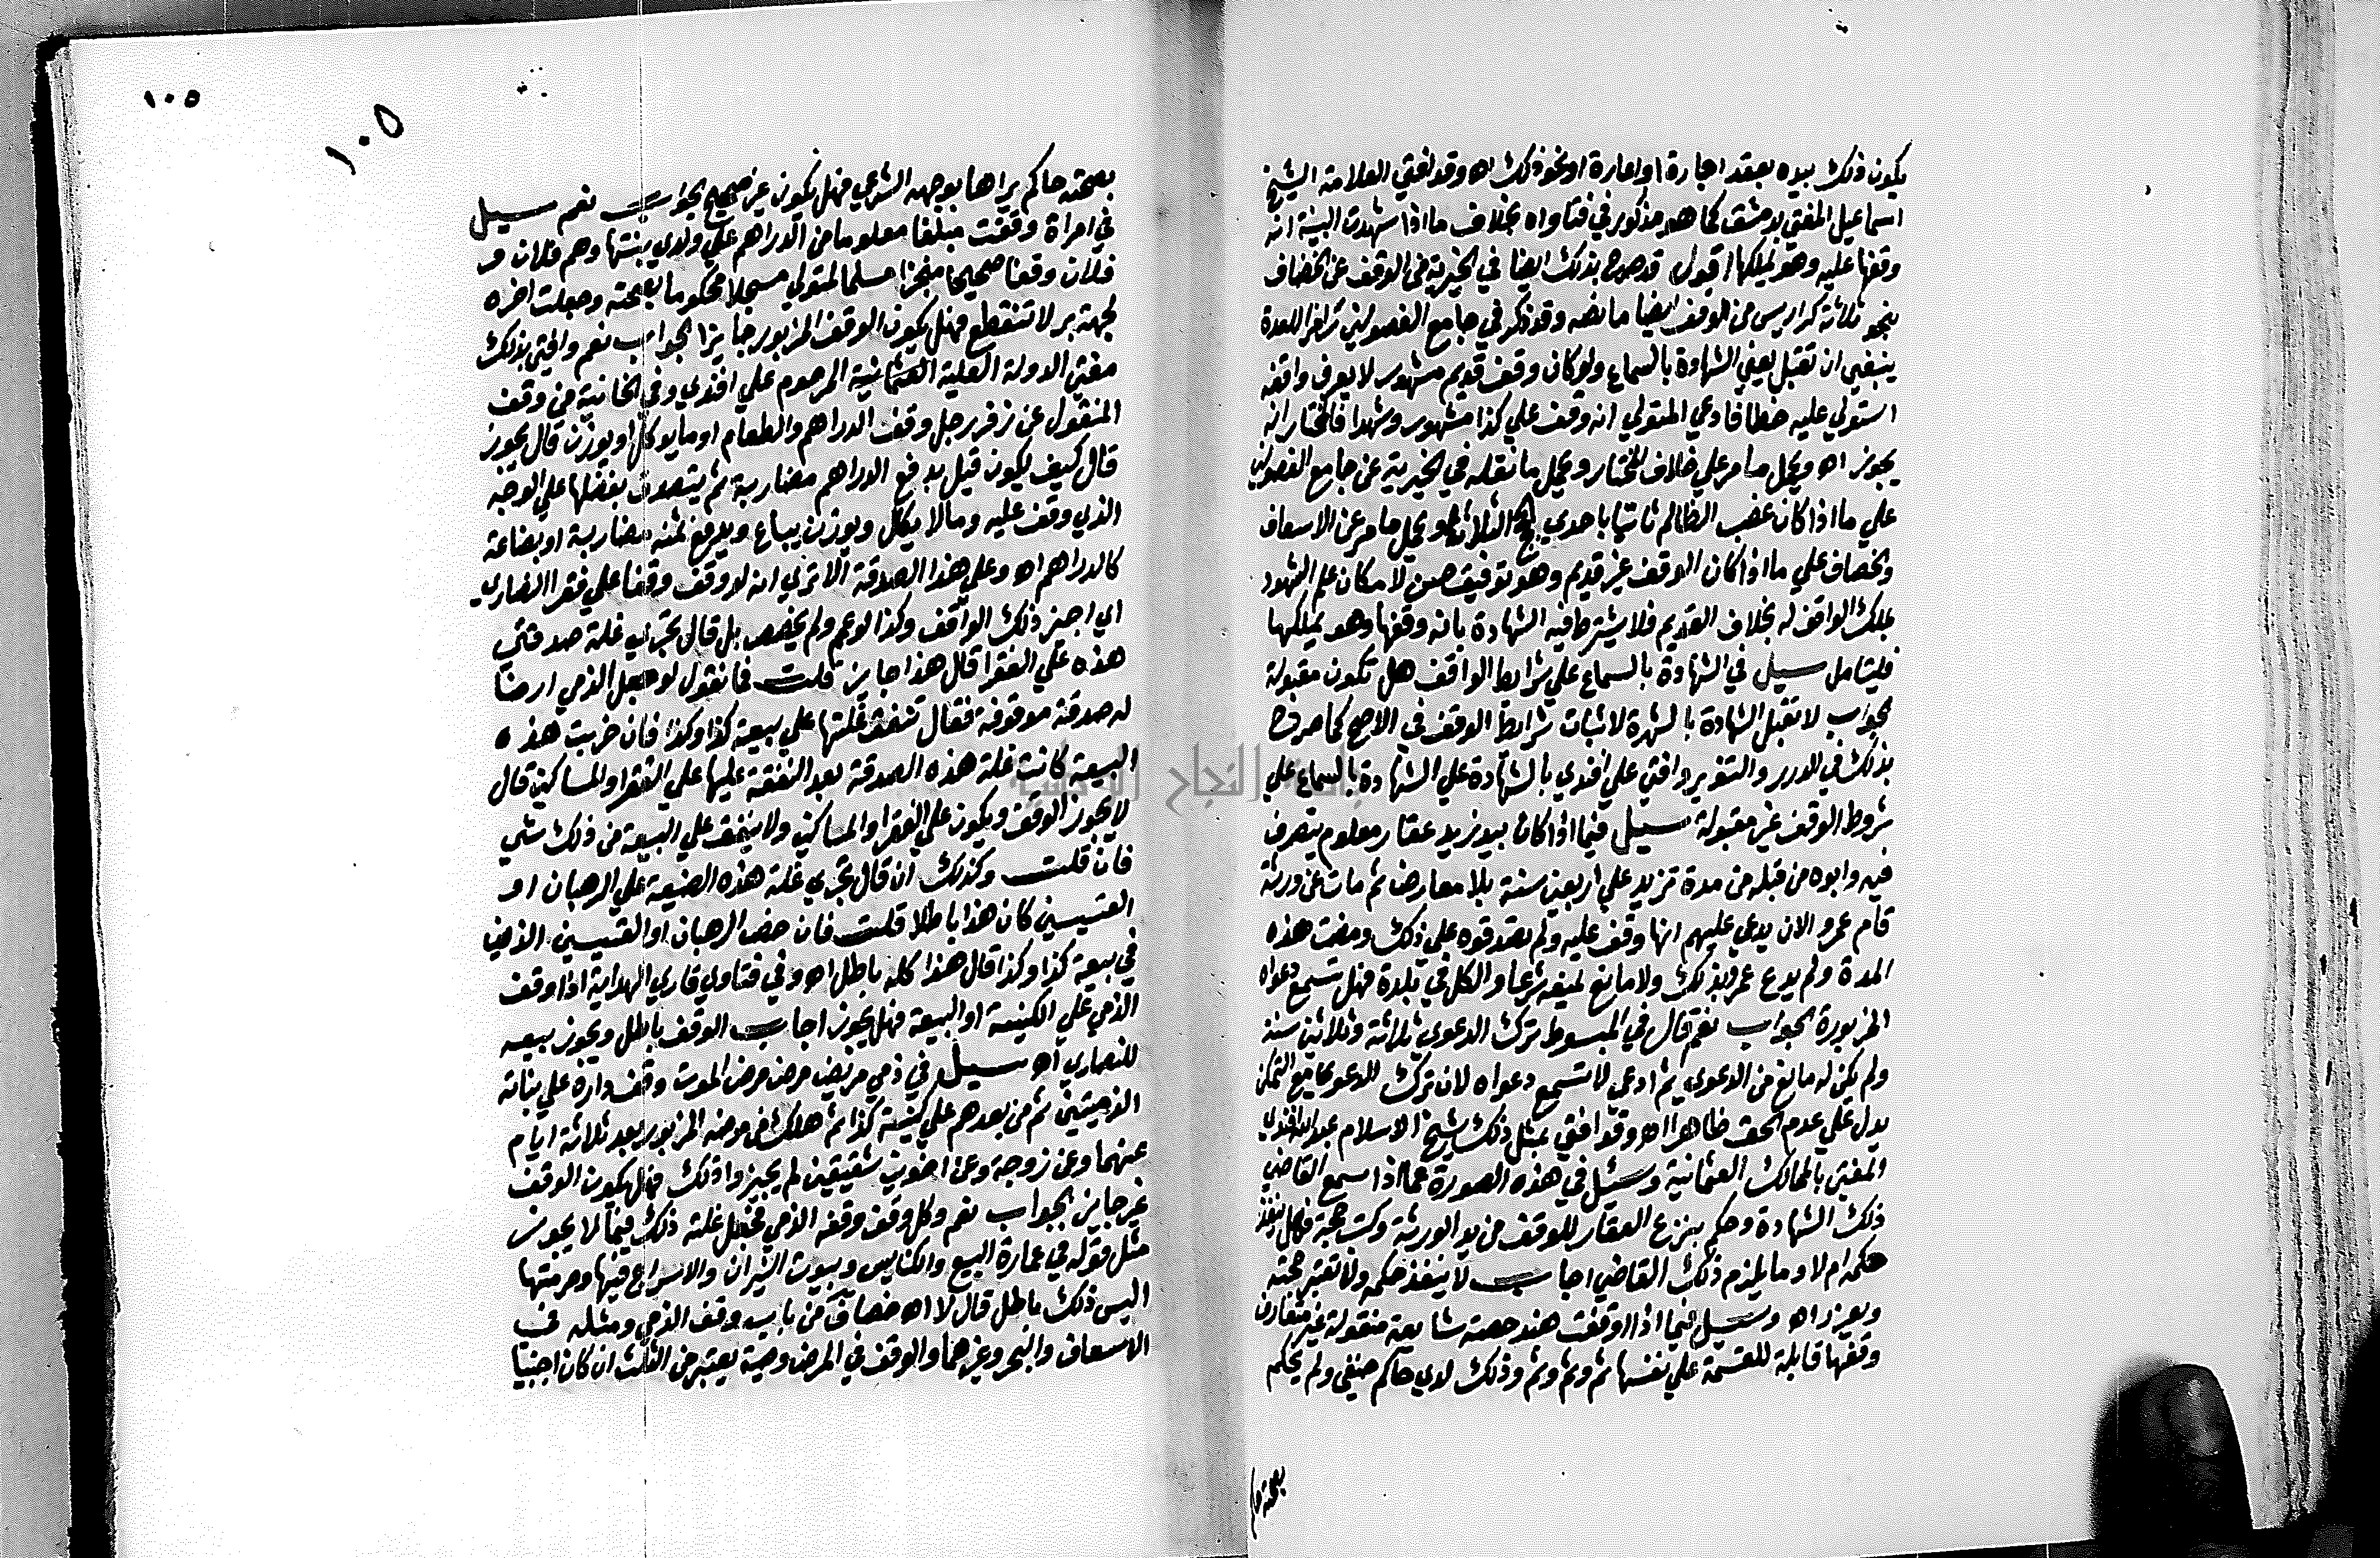 يكون ذلك بيده بعقد اجارة او اعارة او نحو ذلك اه وقد افتي العلامة الشيخ
اسماعيل المفتي بدمشق كما هو مذكور في فتاواه بخلاف ما اذا شهدت البينة انه
وقفها عليه وهو يملكها اقول قد صرح بذلك ايضا في الخيرية في الوقف عن الخصاف
بنحو ثلاثة كراريس من الوقف ايضا ما نصه وقد ذكر في جامع الفصولين رامزا للعدة
ينبغي ان تقبل يعني الشهادة بالسماع ولو كان وقف قديم مشهور لا يعرف واقفه
استولي عليه ظالم فادعي المتولي انه وقف علي كذا مشهور وشهدا فالمختار انه
يجوز اه ويحمل ما مر علي خلاف المختار ويحمل ما نقله في الخيرية عن جامع الفصولين
علي ما اذا كان غصب الظالم ثابتا باحدي الحجج الثلاث او يحمل ما مر عن الاسعاف
والخصاف علي ما اذا كان الوقف غير قديم وهو توفيق حسن لامكان علم الشهود
بملك الواقف له بخلاف القديم فلا يشترط فيه الشهادة بانه وقفها وهو يملكها
فليتامل سيل في الشهادة بالسماع علي شرايط الواقف هل تكون مقبولة
الجواب لا تقبل الشهادة بالشهرة لاثبات شرايط الوقف في الاصح كما صرح
بذلك في الدرر والتنوير وافتي علي افندي بالشهادة علي الشهادة بالسماع علي
شروط الوقف غير مقبولة سيل فيما اذا كان بيد زيد عقار معلوم يتصرف
فيه وابوه من قبله من مدة تزيد علي اربعين سنة بلا معارض ثم مات عن ورثة
قام عمرو الان يدعي عليهم انها وقف عليه ولم يصدقوه علي ذلك ومضت هذه
المدة ولم يدع عمرو بذلك ولا مانع يمنعه شرعا والكل في بلدة فهل تسمع دعواه
المزبورة الجواب نعم قال في المبسوط ترك الدعوي ثلاثة وثلاثين سنة
ولم يكن له مانع من الدعوي ثم ادعي لا تسمع دعواه لان ترك الدعوي مع التمكن
يدل علي عدم الحق ظاهرا اه وقد افتي بمثل ذلك شيخ الاسلام عبد الله افندي
المفتي بالممالك العثمانية وسئل في هذه الصورة عما اذا سمع القاضي
ذلك الشهادة وحكم بنزع العقار للوقف من يد الورثة وكتب حجة فهل ينفذ
حكمه ام لا وما يلزم ذلك القاضي اجاب لا ينفذ حكمه ولا تعتبر حجته
ويعزر اه وسيل فيما اذا اوقفت هند حصته شايعة منقولة غير متعارف
وقفها قابلة للقسمة علي نفسها ثم وثم وثم وذلك لدي حاكم حنيفي ولم يحكم
بصحته حا
١٠٥
١٠٥
بصحته حاكم يراها بوجهه الشرعي فهل يكون غير صحيح الجواب نعم سيل
في امراة وقفت مبلغا معلوما من الدراهم علي ولدي بنتها وهم فلان و
فلان وقفا صحيحا منجزا مسلما لمتولي مسجلا محكوما بصحته وجعلت اخره
لجهة بر لا تنقطع فهل يكون الوقف المزبور جايزا الجواب نعم وافتي بذلك
مفتي الدولة العلية العثمانية المرحوم علي افندي وفي الخانية من وقف
المنقول عن زفر رجل وقف الدراهم والطعام او ما يوكل او يوزن قال يجوز
قال كيف يكون قيل يدفع الدراهم مضاربة ثم يتصدق بفضلها علي الوجه
الذي وقف عليه وما لا يكال ويوزن يباع ويدفع ثمنه مضاربة او بضاعة
كالدراهم اه وعلي هذا الصدقة الا تري انه لو وقف وقفا علي فقرا النصاري
اي اجيز ذلك الواقف وكذا لو عم ولم يخصص بل قال تجري غلة صدقتي
هذه علي الفقرا قال هذا جايز قلت فما نقول لو جعل الذمي ارضا
له صدقة موقوفة فقال تنفق غلتها علي بيعة كذا وكذا فان خربت هذه
البيعة كانت غلة هذه الصدقة بعد النفقة عليها علي الفقرا والمساكين قال
لا يجوز الوقف ويكون علي الفقرا والمساكين ولا ينفق علي البيعة من ذلك شي
فان قلت وكذلك ان قال تجري غلة هذه الضيعة علي الرهبان او
القسيسين كان هذا باطلا قلت فان خص الرهبان او القسيسين الذين
في بيعة كذا وكذا قال هذا كله باطل اه وفي فتاوي قاري الهداية اذا وقف
الذمي علي الكنيسة او البيعة فهل يجوز اجاب الوقف باطل ويجوز بيعه
للنصاري اه سيل في ذمي مريض مرض مرض الموت وقف داره علي بناته
الذميتين ثم من بعدهم علي كنيسة كذا ثم هلك في مرضه المزبور بعد ثلاثة ايام
عنهما وعن زوجة وعن اخوين شقيقين لم يجيزوا ذلك فهل يكون الوقف
غير جايز الجواب نعم وكل وقف وقفه الذمي فجعل غلة ذلك فيما لا يجوز
مثل قوله في عمارة البيع والكنايس وبيوت النيران والاسراج فيها ومرمتها
اليس ذلك باطل قال لا اه خصاف من باب وقف الذمي ومثله في
الاسعاف والبحر وغيرهما والوقف في المرض وصية يعتبر من الثلث ان كان اجنبيا
جامعة النجاح الوطنية